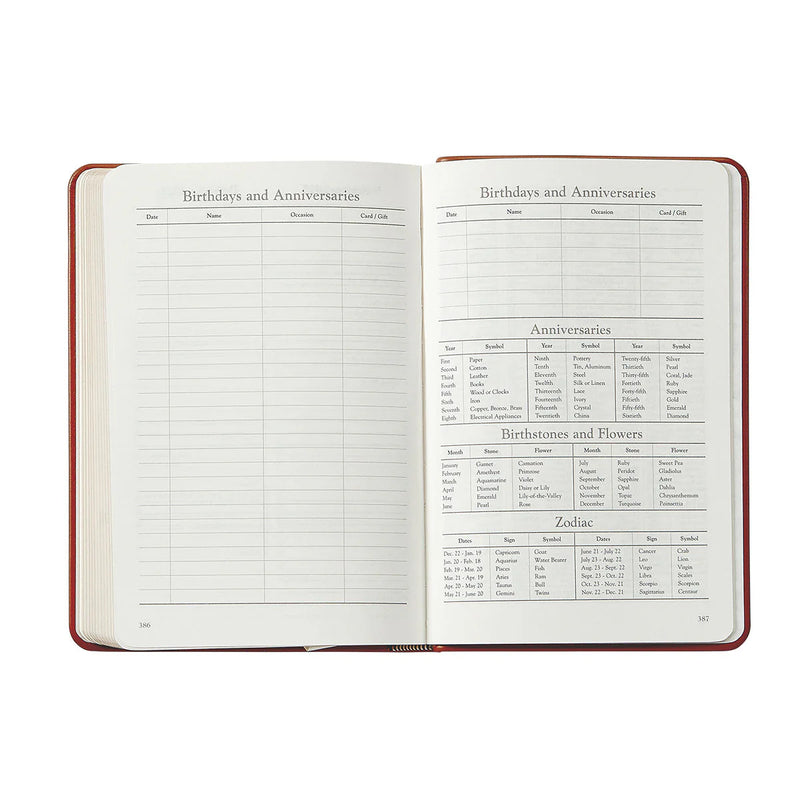 Birthdays and Anniversaries
Date Name Occasion Card / Gift
386
Birthdays and Anniversaries
Date Name Occasion Card / Gift
Anniversaries
Year Symbol Year Symbol Year Symbol
First Paper Ninth Pottery Twenty-fifth Silver
Second Cotton Tenth Tin, Aluminum Thirtieth Pearl
Third Leather Eleventh Steel Thirty-fifth Coral, Jade
Fourth Books Twelfth Silk or Linen Fortieth Ruby
Fifth Wood or Clocks Thirteenth Lace Forty-fifth Sapphire
Sixth Iron Fourteenth Ivory Fiftieth Gold
Seventh Copper, Bronze, Brass Fifteenth Crystal Fifty-fifth Emerald
Eighth Electrical Appliances Twentieth China Sixtieth Diamond
Birthstones and Flowers
Month Stone Flower Month Stone Flower
January Garnet Carnation July Ruby Sweet Pea
February Amethyst Primrose August Peridot Gladiolus
March Aquamarine Violet September Sapphire Aster
April Diamond Daisy or Lily October Opal Dahlia
May Emerald Lily-of-the-Valley November Topaz Chrysanthemum
June Pearl Rose December Turquoise Poinsettia
Zodiac
Dates Sign Symbol Dates Sign Symbol
Dec. 22 - Jan. 19 Capricorn Goat June 21 - July 22 Cancer Crab
Jan. 20 - Feb. 18 Aquarius Water Bearer July 23 - Aug. 22 Leo Lion
Feb. 19 - Mar. 20 Pisces Fish Aug. 23 - Sept. 22 Virgo Virgin
Mar. 21 - Apr. 19 Aries Ram Sept. 23 - Oct. 22 Libra Scales
Apr. 20 - May 20 Taurus Bull Oct. 23 - Nov. 21 Scorpio Scorpion
May 21 - June 20 Gemini Twins Nov. 22 - Dec. 21 Sagittarius Centaur
387